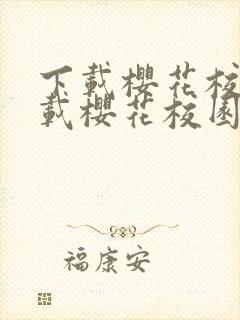 下載櫻花校
載櫻花校園
福康安